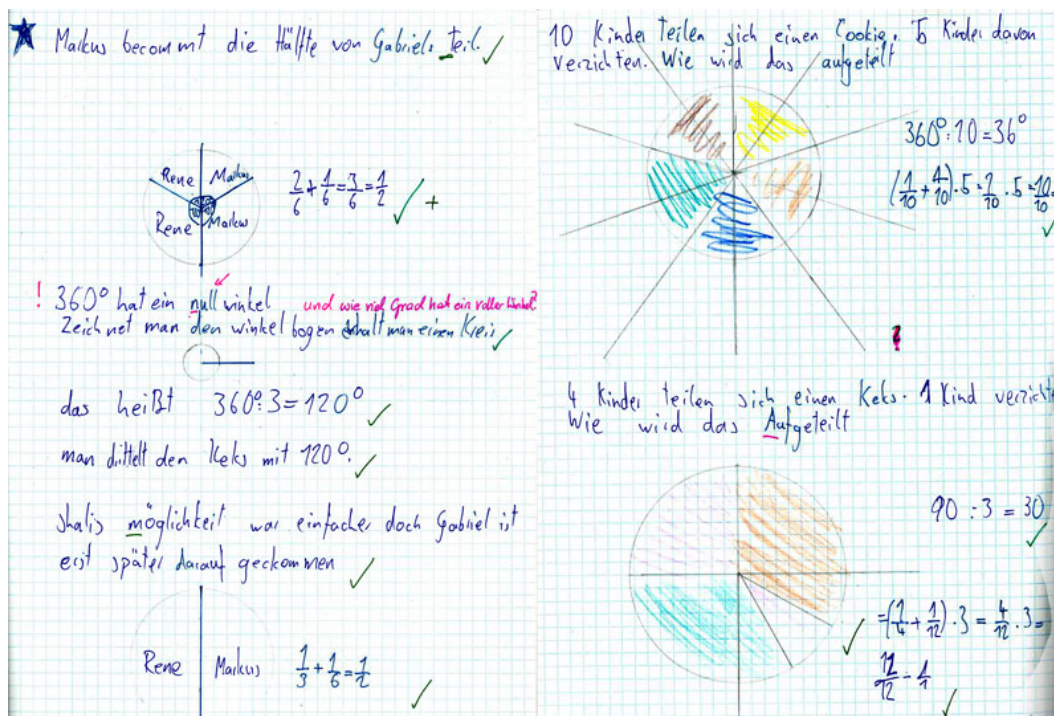 Markus becommt die Hälfte von Gabriels teil.
Rene Markus
Rene Markus
2/6 + 1/6 = 3/6 = 1/2
+
! 360° hat ein nullwinkel und wie viel Grad hat ein voller Winkel?
Zeichnet man den winkelbogen erhalt man einen Kreis
das heißt 360°:3=120°
man drittelt den Keks mit 120°.
shalis möglichkeit war einfacher doch Gabriel ist
erst später darauf geckommen
Rene Markus
1/3 + 1/6 = 1/2
10 Kinder teilen sich einen Cookie. 5 Kinder davon
verzichten. Wie wird das aufgeteilt
360°:10=36°
5 = 10/10
4 Kinder teilen sich einen Keks. 1 Kind verzicht
Wie wird das Aufgeteilt
90 : 3 = 30
=(1/4 + 1/12) · 3 = 4/12 · 3 =
12/12 = 1/1